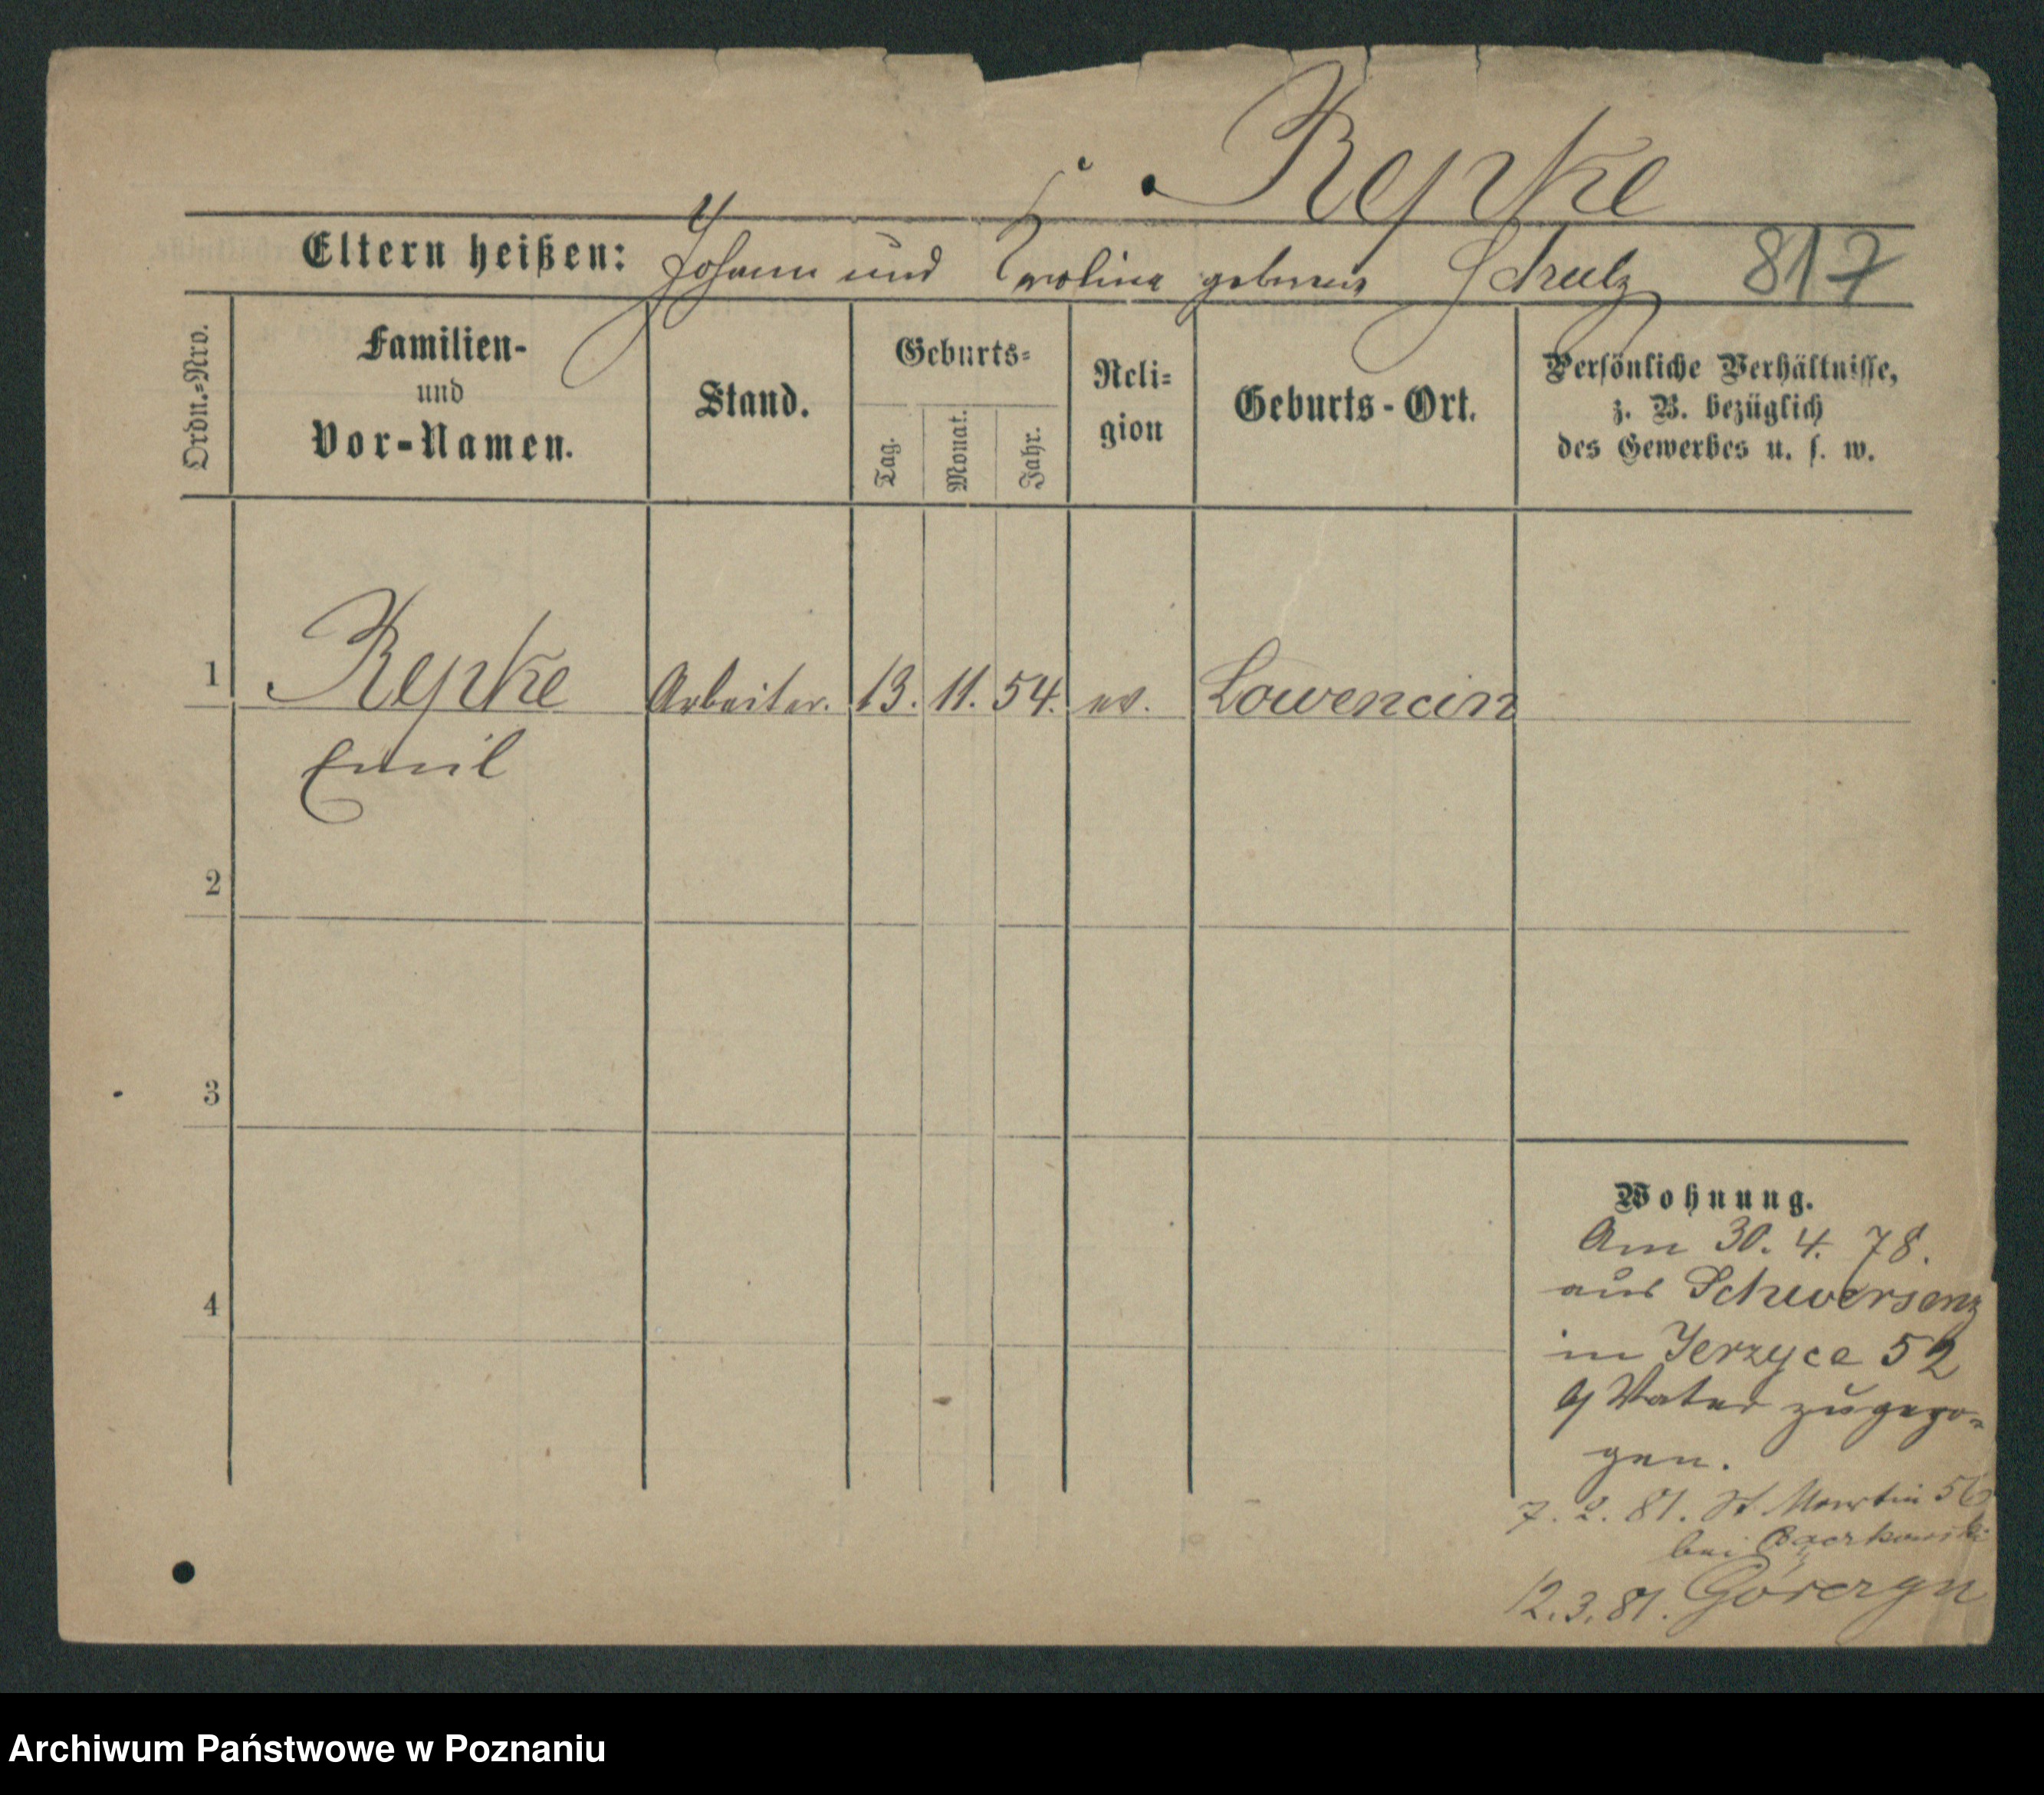 Repke
Eltern heißen: Johann und Karolina geborene Schulz 817
Ordn.-Nro.
Familien-
und
Vor-Namen.
Stand.
Geburts-
Tag.
Monat.
Jahr.
Reli-
gion
Geburts-Ort.
Persönliche Verhältnisse,
z. B. bezüglich
des Gewerbes u. s. w.
1 Repke Arbeiter. 13. 11. 54. ev. Lowencin
Emil
2
3
4
Wohnung.
Am 30. 4. 78.
aus Schwersenz
in Jerzyce 52
Vater zugezo-
gen.
7. 2. 81. St. Martin 56
bei
12. 3. 81.
Archiwum Państwowe w Poznaniu